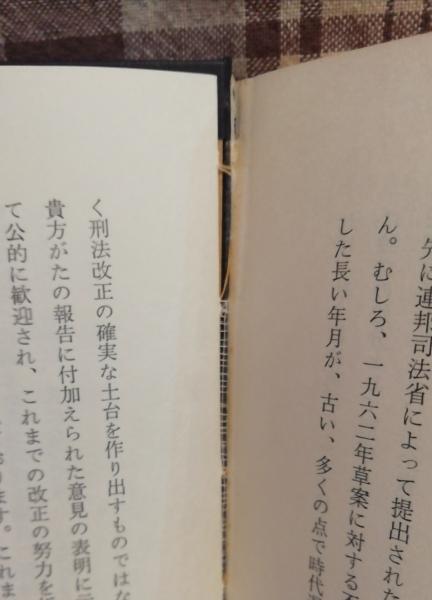 先に連邦司法省によって提出された
ん。むしろ、一九六二年草案に対する
した長い年月が、古い、多くの点で時代
く刑法改正の確実な土台を作り出すものではな
貴方がたの報告に付加えられた意見の表明に
て公的に歓迎され、これまでの改正の努力を
おります。これま